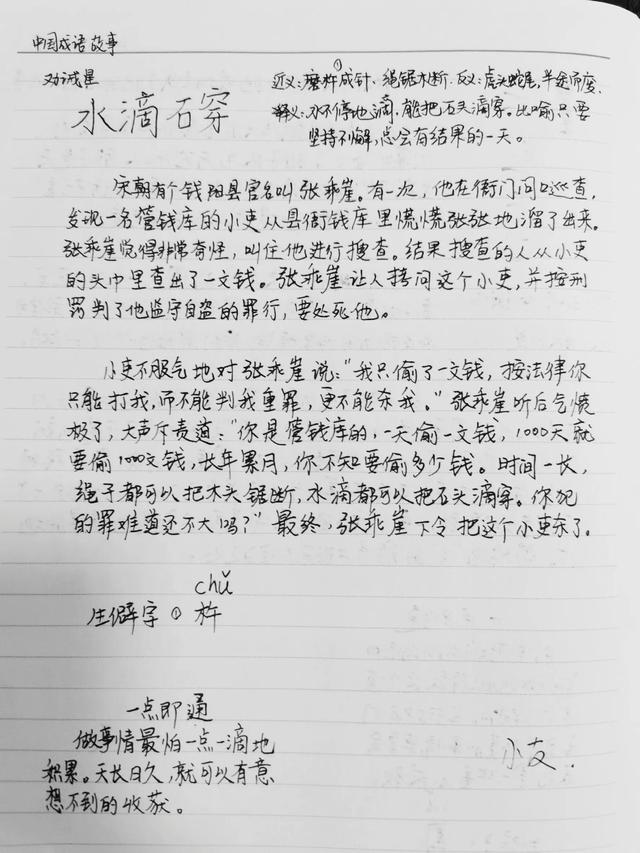 中国成语故事
劝诫星
水滴石穿
①
近义:磨杵成针、绳锯木断. 反义:虎头蛇尾,半途而废.
释义:水不停地滴,能把石头滴穿。比喻只要
坚持不懈,总会有结果的一天。
宋朝有个钱阳县官名叫张乖崖。有一次,他在衙门口巡查,
发现一名管钱库的小吏从县衙钱库里慌慌张张地溜了出来。
张乖崖觉得非常奇怪,叫住他进行搜查。结果搜查的人从小吏
的头巾里查出了一文钱。张乖崖让人拷问这个小吏,并按刑
罚判了他监守自盗的罪行,要处死他。
小吏不服气地对张乖崖说:“我只偷了一文钱,按法律你
只能打我,而不能判我重罪,更不能杀我。”张乖崖听后气愤
极了,大声斥责道:“你是管钱库的,一天偷一文钱,1000天就
要偷1000文钱,长年累月,你不知要偷多少钱。时间一长,
绳子都可以把木头锯断,水滴都可以把石头滴穿。你犯
的罪难道还不大吗?”最终,张乖崖下令把这个小吏杀了。
chǔ
生僻字①杵
一点即通
做事情最怕一点一滴地
积累。天长日久,就可以有意
想不到的收获。
小友.